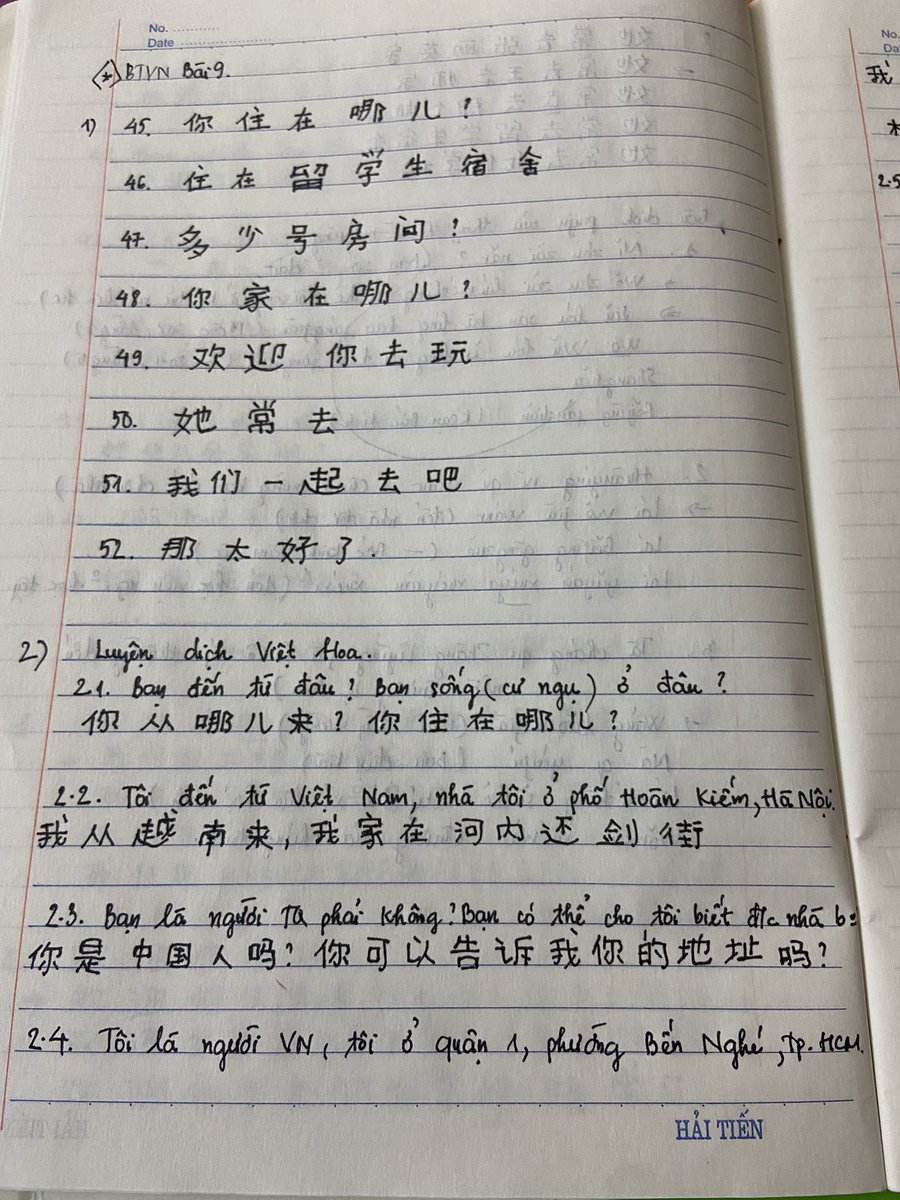 No. ............
Date ........................
BTVN Bài 9.
1) 45. 你住在哪儿?
46. 住在留学生宿舍
47. 多少号房间?
48. 你家在哪儿?
49. 欢迎你去玩
50. 她常去
51. 我们一起去吧
52. 那太好了.
2) Luyện dịch Việt Hoa.
2.1. Bạn đến từ đâu? Bạn sống (cư ngụ) ở đâu?
你从哪儿来?你住在哪儿?
2.2. Tôi đến từ Việt Nam, nhà tôi ở phố Hoàn Kiếm, Hà Nội.
我从越南来,我家在河内还剑街
2.3. Bạn là người TQ phải không? Bạn có thể cho tôi biết đ/c nhà b
你是中国人吗?你可以告诉我你的地址吗?
2.4. Tôi là người VN, tôi ở quận 1, phường Bến Nghé, Tp. HCM.
HẢI TIẾN
No.
Da
我
2.5